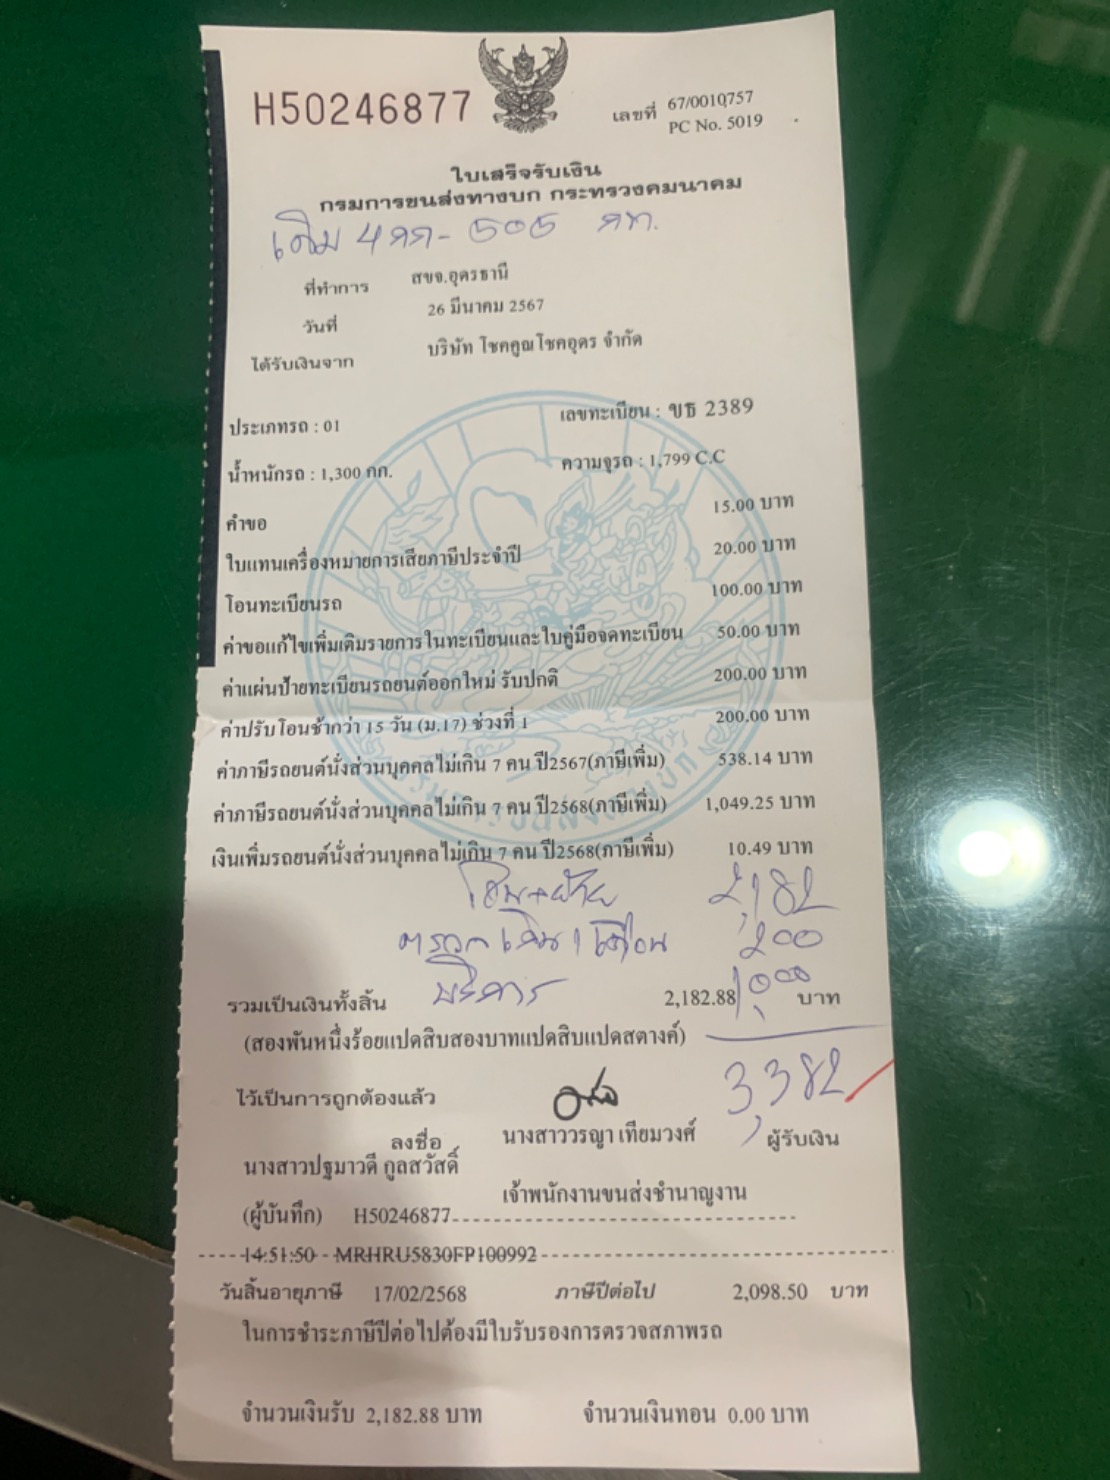 H50246877
เลขที่ 67/0010757
PC No. 5019
ใบเสร็จรับเงิน
กรมการขนส่งทางบก กระทรวงคมนาคม
เดิม 4กก-505 กท.
ที่ทำการ สขจ.อุดรธานี
วันที่ 26 มีนาคม 2567
ได้รับเงินจาก บริษัท โชคคูณโชคอุดร จำกัด
ประเภทรถ : 01 เลขทะเบียน : ขธ 2389
น้ำหนักรถ : 1,300 กก. ความจุรถ : 1,799 C.C
คำขอ 15.00 บาท
ใบแทนเครื่องหมายการเสียภาษีประจำปี 20.00 บาท
โอนทะเบียนรถ 100.00 บาท
ค่าขอแก้ไขเพิ่มเติมรายการในทะเบียนและใบคู่มือจดทะเบียน 50.00 บาท
ค่าแผ่นป้ายทะเบียนรถยนต์ออกใหม่ รับปกติ 200.00 บาท
ค่าปรับโอนช้ากว่า 15 วัน (ม.17) ช่วงที่ 1 200.00 บาท
ค่าภาษีรถยนต์นั่งส่วนบุคคลไม่เกิน 7 คน ปี2567(ภาษีเพิ่ม) 538.14 บาท
ค่าภาษีรถยนต์นั่งส่วนบุคคลไม่เกิน 7 คน ปี2568(ภาษีเพิ่ม) 1,049.25 บาท
เงินเพิ่มรถยนต์นั่งส่วนบุคคลไม่เกิน 7 คน ปี2568(ภาษีเพิ่ม) 10.49 บาท
โอน+ย้าย 2,182
ตรวจเกิน 1 เดือน 200
บริการ 1,000
รวมเป็นเงินทั้งสิ้น 2,182.88 บาท
(สองพันหนึ่งร้อยแปดสิบสองบาทแปดสิบแปดสตางค์)
3,382
ไว้เป็นการถูกต้องแล้ว
ลงชื่อ นางสาววรญา เทียมวงศ์ ผู้รับเงิน
นางสาวปฐมาวดี กูลสวัสดิ์
เจ้าพนักงานขนส่งชำนาญงาน
(ผู้บันทึก) H50246877
14:51:50 MRHRU5830FP100992
วันสิ้นอายุภาษี 17/02/2568 ภาษีปีต่อไป 2,098.50 บาท
ในการชำระภาษีปีต่อไปต้องมีใบรับรองการตรวจสภาพรถ
จำนวนเงินรับ 2,182.88 บาท จำนวนเงินทอน 0.00 บาท